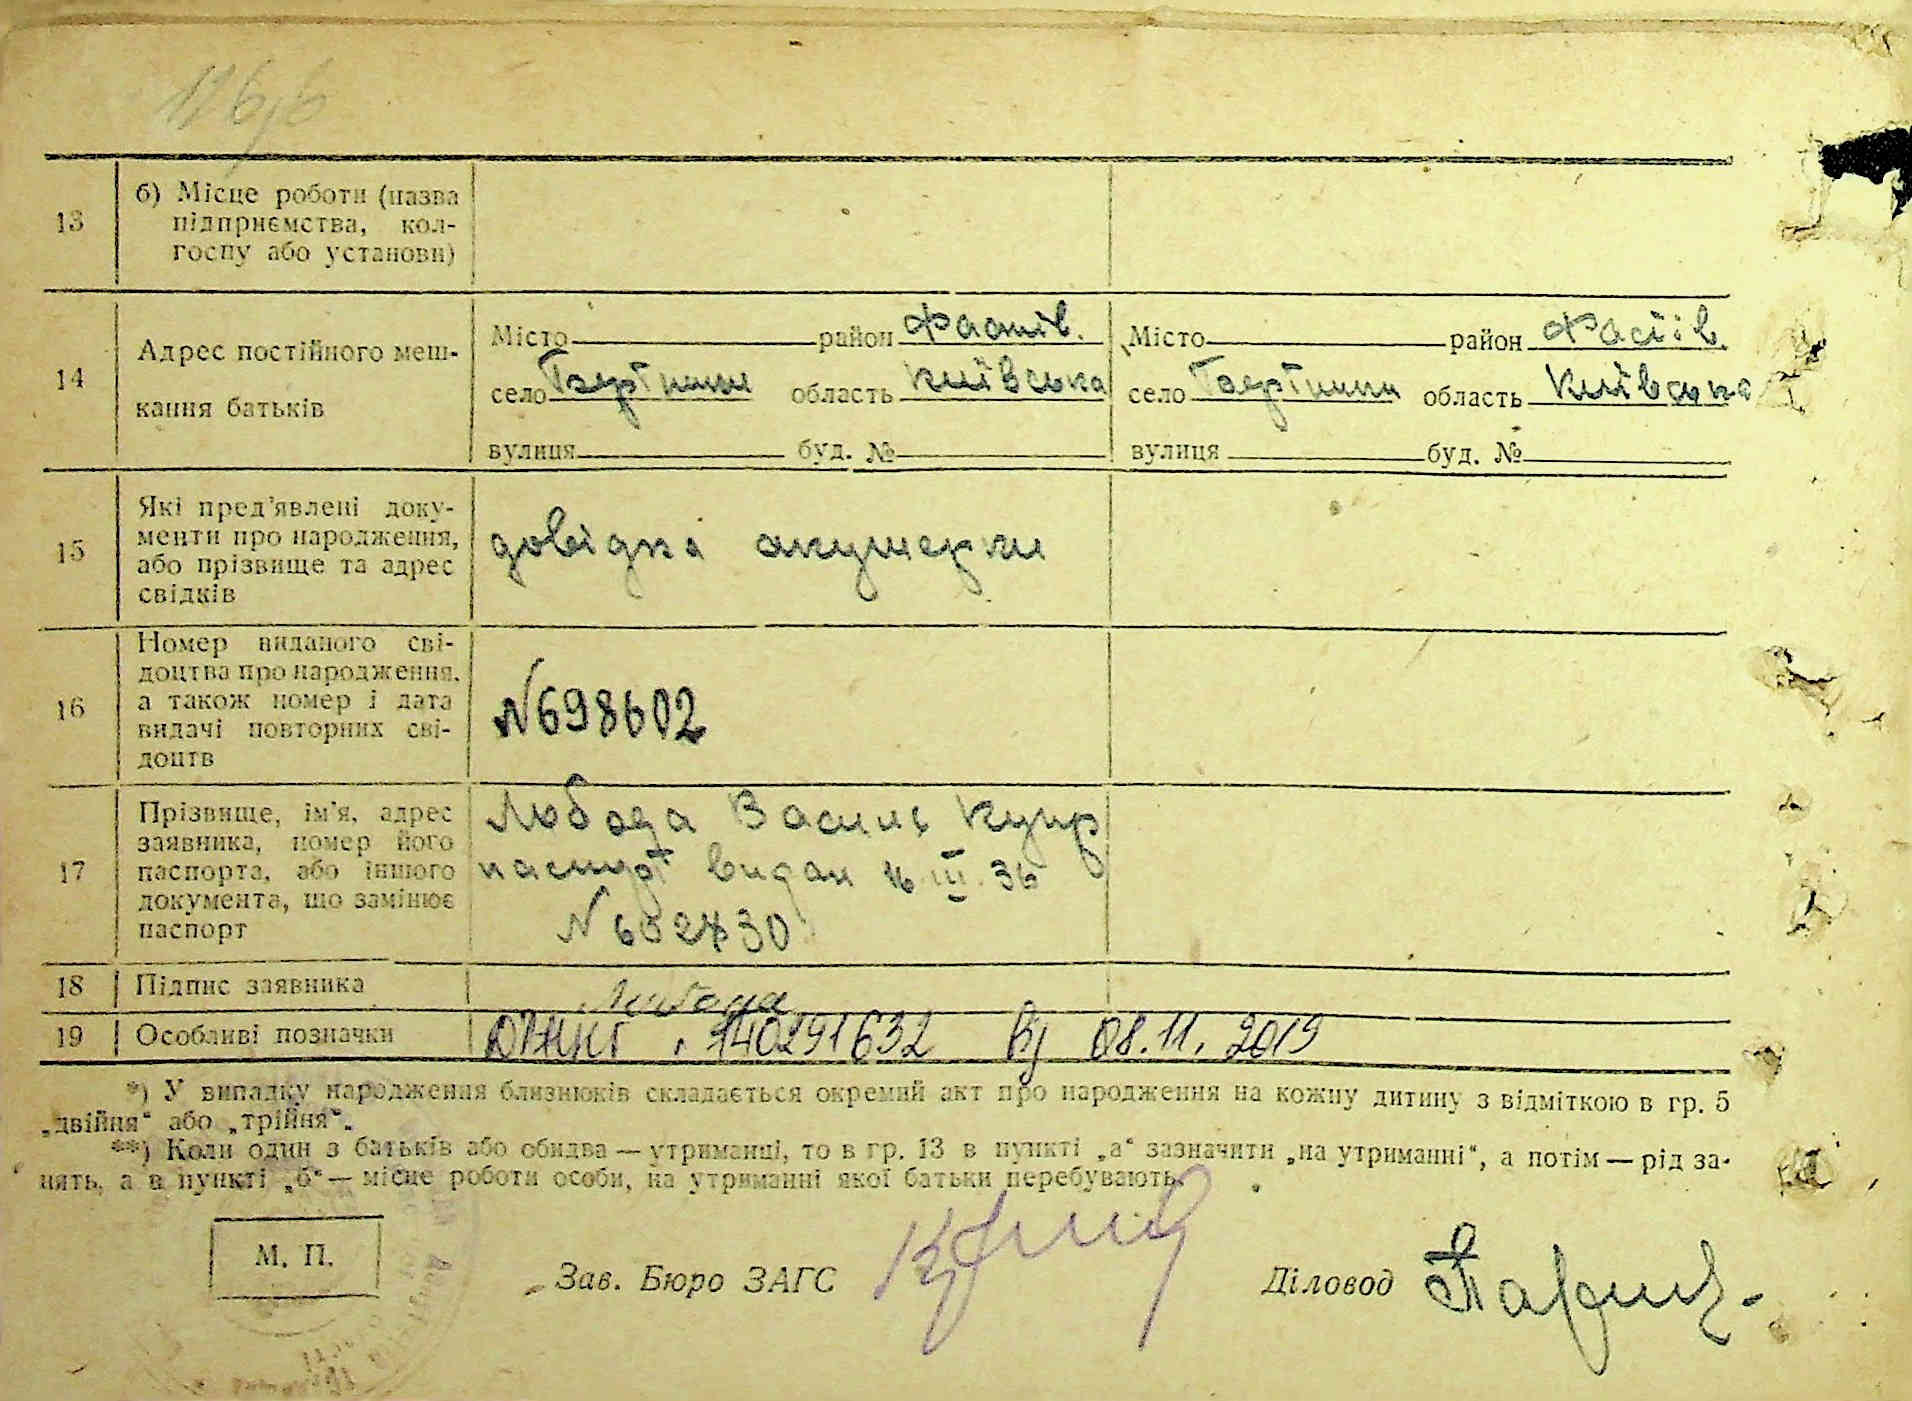 13
б) Місце роботи (назва
підприємства, кол-
госпу або установи)
14
Адрес постійного меш-
кання батьків
Місто район Фастів.
село область Київська
вулиця буд. №
Місто район Фастів.
село область Київська
вулиця буд. №
15
Які пред'явлені доку-
менти про народження,
або прізвище та адрес
свідків
довідка акушерки
16
Номер виданого сві-
доцтва про народження,
а також номер і дата
видачі повторних сві-
доцтв
№698602
17
Прізвище, ім'я, адрес
заявника, номер його
паспорта, або іншого
документа, що замінює
паспорт
Любода Василь Купр
паспорт видан 16 III. 36
№
18 Підпис заявника
19 Особливі позначки
140291632 від 08.11.2019
*) У випадку народження близнюків складається окремий акт про народження на кожну дитину з відміткою в гр. 5
„двійня“ або „трійня“.
**) Коли один з батьків або обидва — утриманці, то в гр. 13 в пункті „а“ зазначити „на утриманні“, а потім — рід за-
нять, а в пункті „б“ — місце роботи особи, на утриманні якої батьки перебувають.
М. П.
Зав. Бюро ЗАГС
Діловод